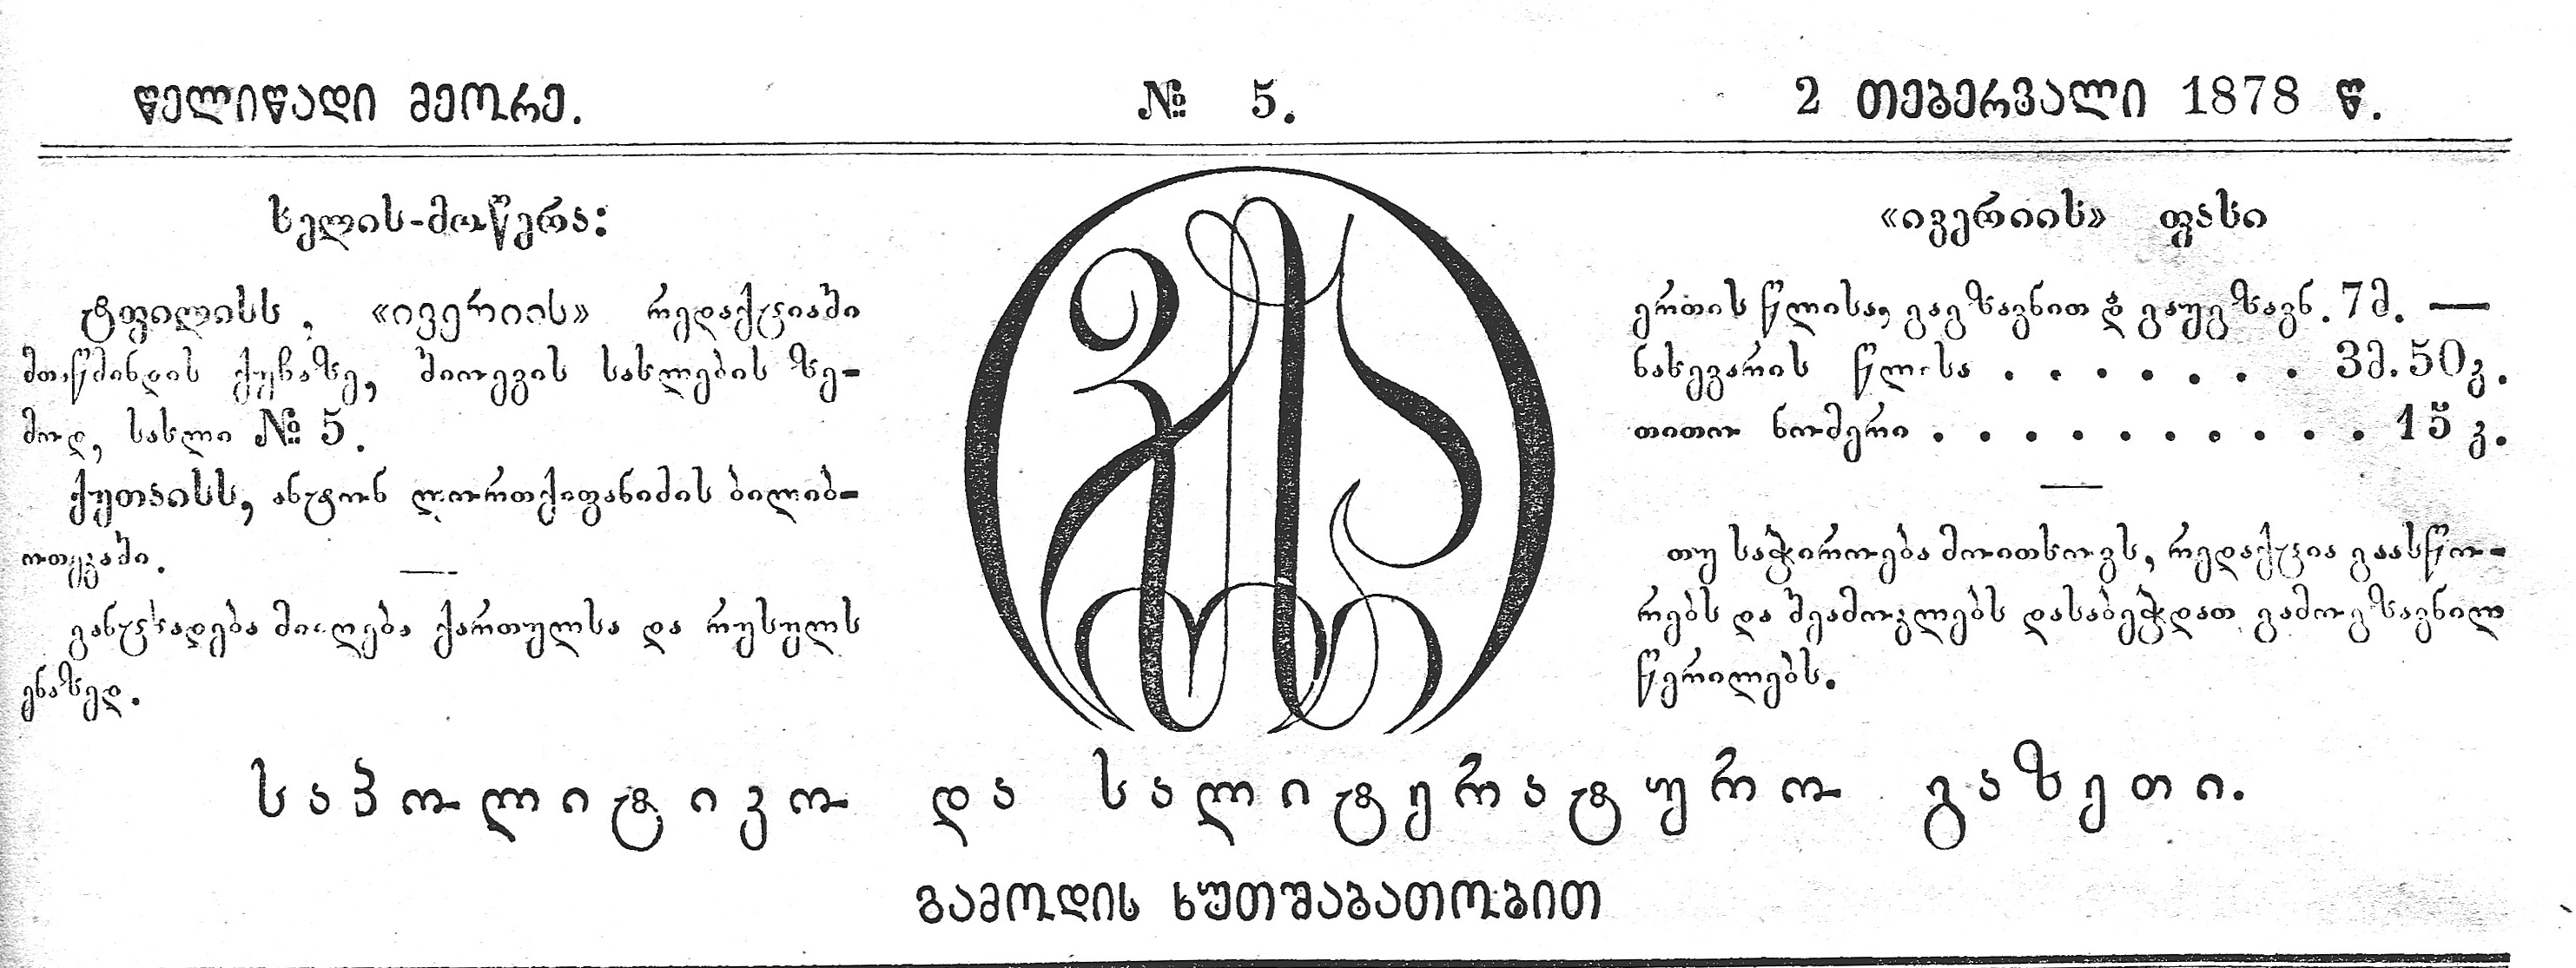 წელიწადი მეორე.
№ 5.
2 თებერვალი 1878 წ.
ხელის-მოწერა:
ტფილისს, «ივერიის» რედაქციაში
მთაწმინდის ქუჩაზე, შიოევის სახლების ზე-
მოდ, სახლი № 5.
ქუთაისს, ანტონ ლორთქიფანიძის ბიღიბ-
ოთეკაში.
განცხადება მიიღება ქართულსა და რუსულს
ენაზედ.
«ივერიის» ფასი
ერთის წლისა, გაგზავნით და გაუგზავნ. 7 მ. —
ნახევარის წლისა . . . . . . . 3 მ. 50 კ.
თითო ნომერი . . . . . . . . . . 15 კ.
თუ საჭიროება მოითხოვს, რედაქცია გაასწო-
რებს და შეამოკლებს დასაბეჭდათ გამოგზავნილ
წერილებს.
საპოლიტიკო და სალიტერატურო გაზეთი.
გამოდის ხუთშაბათობით